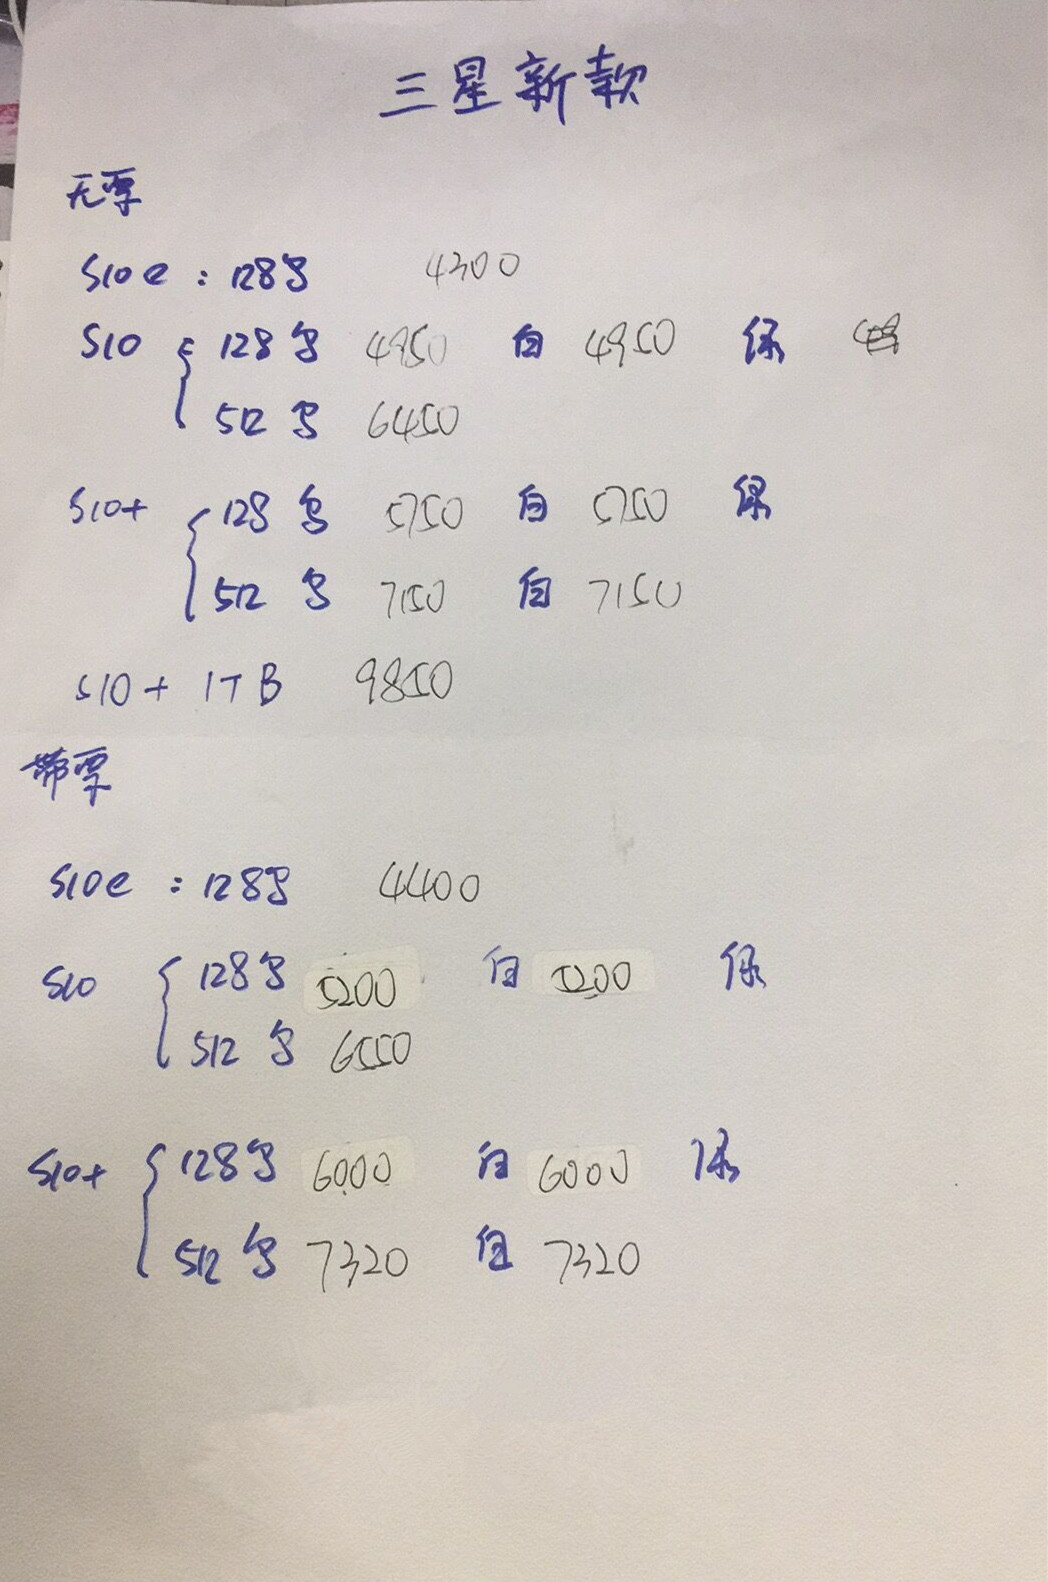 三星新款
无票
S10e：128 4300
S10 128 4950 白 4950 绿
512 6450
S10+ 128 5750 白 5750 绿
512 7150 白 7150
S10+ 1TB 9850
带票
S10e：128 4400
S10 128 5200 白 5200 绿
512 6550
S10+ 128 6000 白 6000 绿
512 7320 白 7320